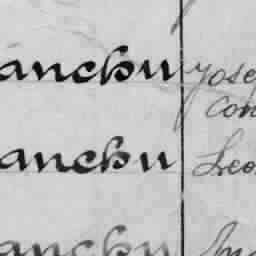 anchu Jose
Con
anchu Leo
anchu